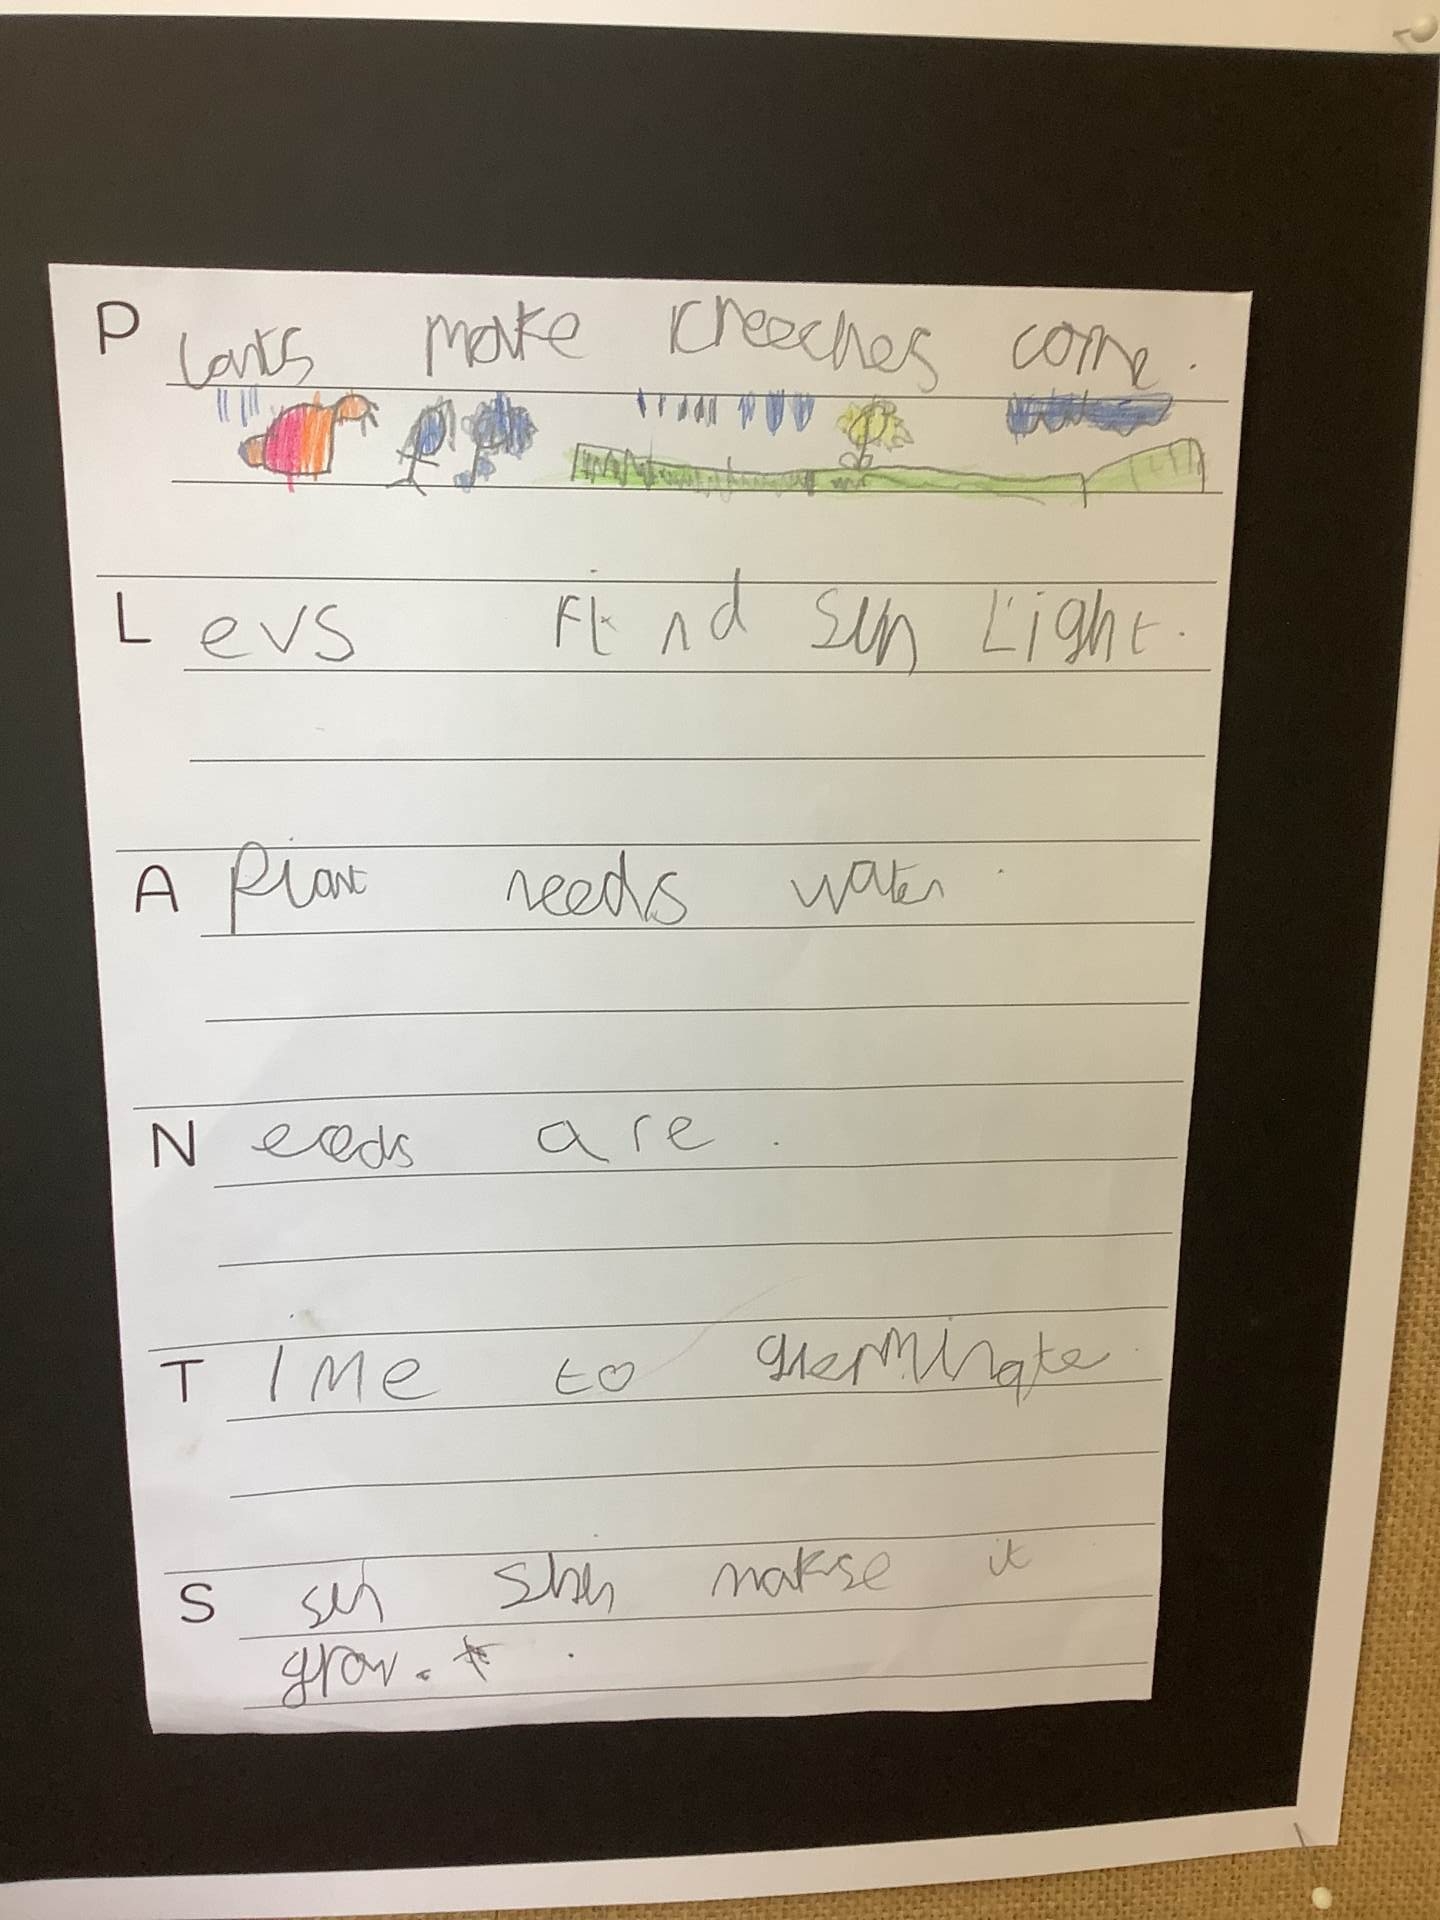 Plants make creeches come.
Levs Find sun Light.
A Plant needs water.
Needs are.
Time to germinate.
S sun shin makse it
grow.